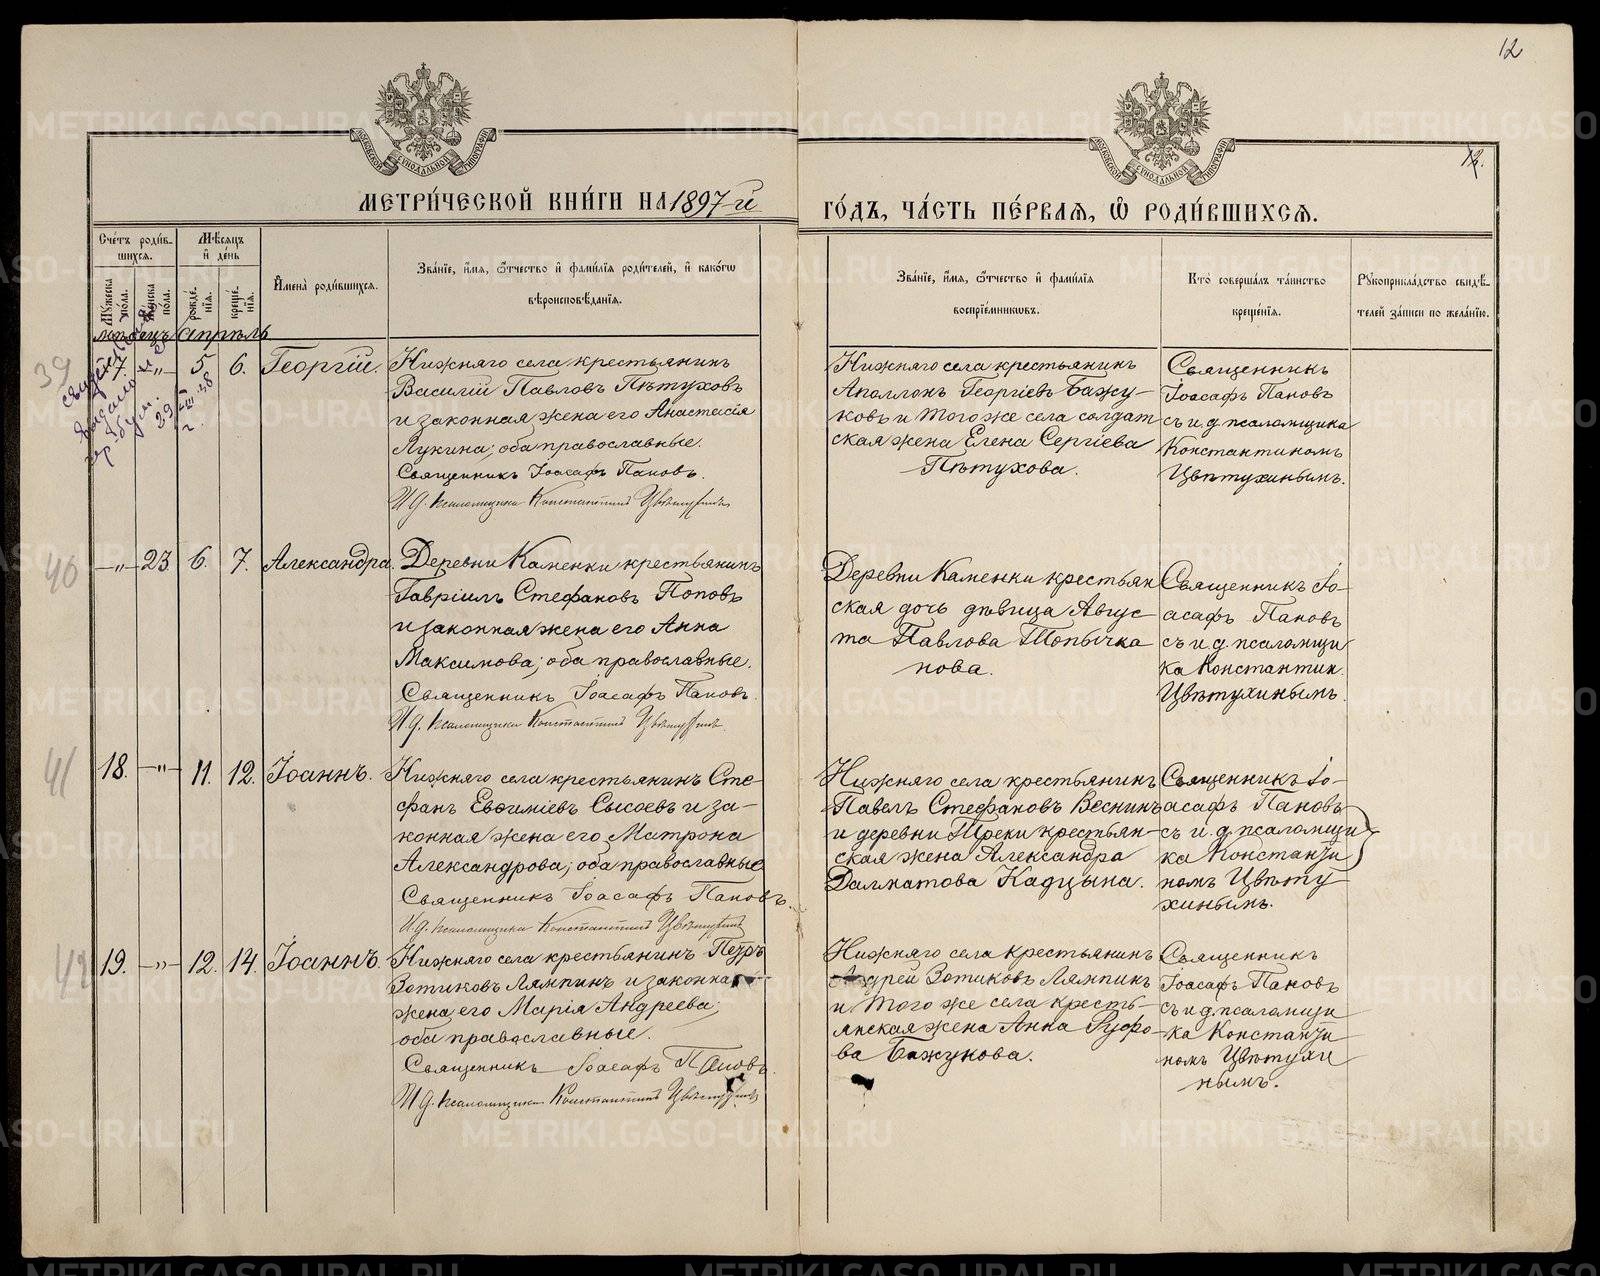 12
12.
МЕТРИ́ЧЕСКОЙ КНИ́ГИ НА 1897-й
ГО́ДЪ, ЧА́СТЬ ПЕ́РВАЯ, Ѡ РОДИ́ВШИХСЯ.
Сче́тъ роди́в-
шихся.
Му́жеска
по́ла.
Же́нска
по́ла.
Мѣ́сяцъ
и де́нь
рожде́-
нія.
креще́-
нія.
Имена̀ роди́вшихся.
Зва́ніе, и́мя, ѻ́тчество и фами́лія роди́телей, и како́гѡ
вѣроисповѣ́данія.
Зва́ніе, и́мя, ѻ́тчество и фами́лія
воспріе́мниковъ.
Кто̀ соверша́лъ та́инство
креще́нія.
Рꙋкоприкла́дство свидѣ́-
телей за́писи по жела́нію.
мѣсяцъ апрѣль
39
17. „ 5 6. Георгій.
Нижняго села крестьянинъ
Василій Павловъ Пѣтуховъ
и законная жена его Анастасія
Лукина; оба православные.
Священникъ Іоасафъ Пановъ.
И. д. псаломщика Константинъ Цвѣтухинъ
Нижняго села крестьянинъ
Аполлонъ Георгіевъ Бажу-
ковъ и того же села солдат
ская жена Елена Сергіева
Пѣтухова.
Священникъ
Іоасафъ Пановъ
съ и. д. псаломщика
Константиномъ
Цвѣтухинымъ.
40
„ 23 6. 7. Александра.
Деревни Каменки крестьянинъ
Гавріилъ Стефановъ Поповъ
и законная жена его Анна
Максимова; оба православные.
Священникъ Іоасафъ Пановъ.
И. д. псаломщика Константинъ Цвѣтухинъ.
Деревни Каменки крестьян
ская дочь дѣвица Авгус-
та Павлова Топычка
нова.
Священникъ Іо-
асафъ Пановъ
съ и. д. псаломщи
ка Константин
Цвѣтухинымъ.
41
18. „ 11. 12. Іоаннъ.
Нижняго села крестьянинъ Сте-
фанъ Евѳиміевъ Сысоевъ и за-
конная жена его Матрона
Александрова; оба православные
Священникъ Іоасафъ Пановъ.
И. д. псаломщика Константинъ Цвѣтухинъ
Нижняго села крестьянинъ
Павелъ Стефановъ Веснинъ
и деревни Треки крестьян-
ская жена Александра
Далматова Кадцына.
Священникъ Іо-
асафъ Пановъ
съ и. д. псаломщи
ка Константи
номъ Цвѣту-
хинымъ.
42
19. „ 12. 14. Іоаннъ.
Нижняго села крестьянинъ Петръ
Зотиковъ Ляпинъ и законная
жена его Марія Андреева;
оба православные.
Священникъ Іоасафъ Пановъ.
И. д. псаломщика Константинъ Цвѣтухинъ
Нижняго села крестьянинъ
Андрей Зотиковъ Ляпинъ
и того же села кресть-
янская жена Анна Руфо-
ва Бажукова.
Священникъ
Іоасафъ Пановъ
съ и. д. псаломщи
ка Константи
номъ Цвѣтухи
нымъ.
METRIKI.GASO-URAL.RU